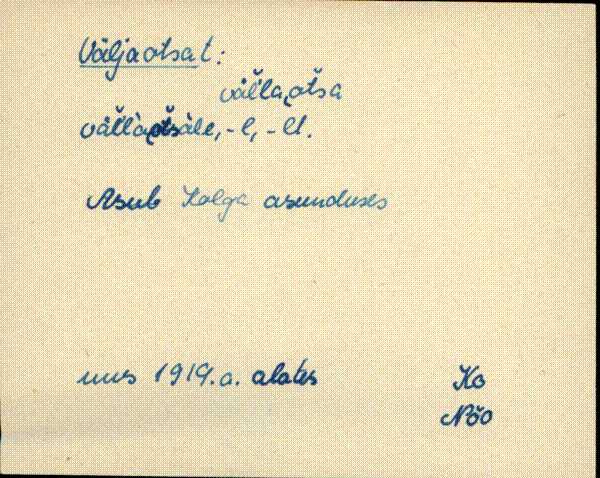 Väljaotsat:
väl̆la‿ot̆sa
väl̆làot̆sàle, -l, -lt.
Asub Kolga asunduses
uus 1919.a. alates
Ko
Nõo